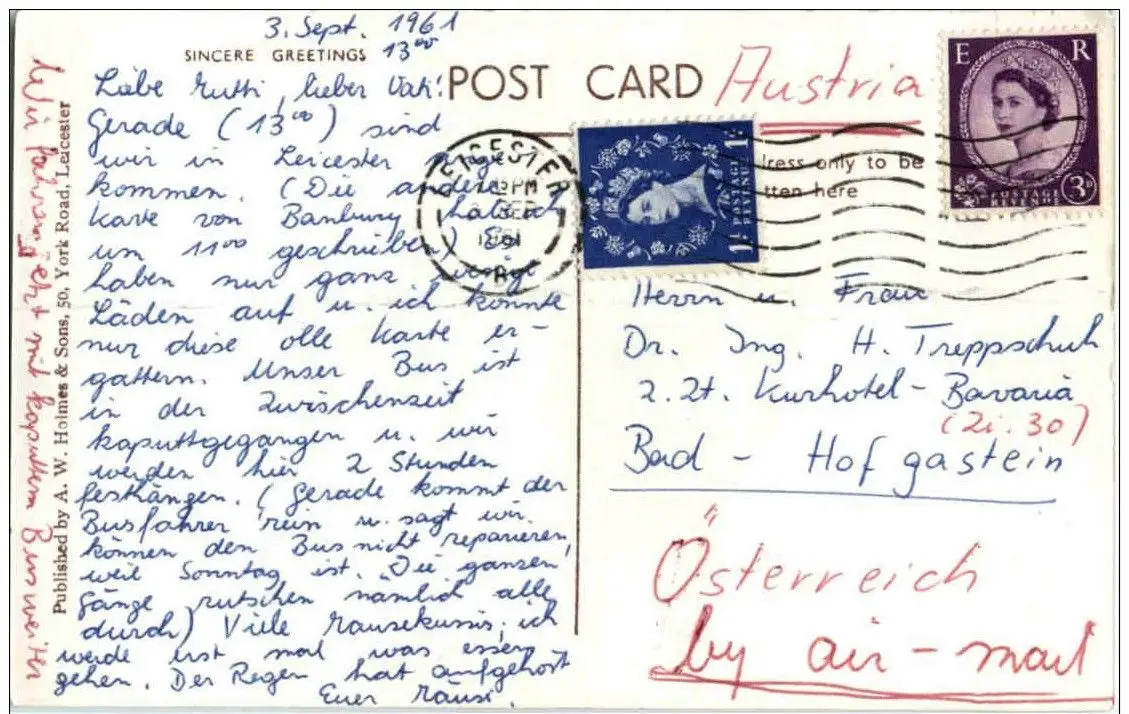 3. Sept. 1961
13⁰⁰
SINCERE GREETINGS
POST CARD
Austria
Liebe Mutti, lieber Vati!
Gerade (13⁰⁰) sind
wir in Leicester ange-
kommen. (Die andere
Karte von Banbury hab ich
um 11⁰⁰ geschrieben) Es
haben nur ganz wenige
Läden auf u. ich konnte
nur diese olle Karte er-
gattern. Unser Bus ist
in der Zwischenzeit
kaputtgegangen u. wir
werden hier 2 Stunden
festhängen. (Gerade kommt der
Busfahrer rein u. sagt wir
können den Bus nicht reparieren,
weil Sonntag ist. Die ganzen
Gänge rutschen nämlich alle
durch) Viele Mausekussis, ich
werde erst mal was essen
gehen. Der Regen hat aufgehört
Euer Mausi.
Wir fahren jetzt mit kaputtem Bus weiter
Published by A. W. Holmes & Sons, 50, York Road, Leicester
LEICESTER
PM
SEP
1961
E R
POSTAGE
REVENUE
3ᴰ
POSTAGE
REVENUE
dress only to be
tten here
Herrn u. Frau
Dr. Ing. H. Treppschuh
z. Zt. Kurhotel-Bavaria
(Zi. 30)
Bad-Hofgastein
Österreich
by air-mail